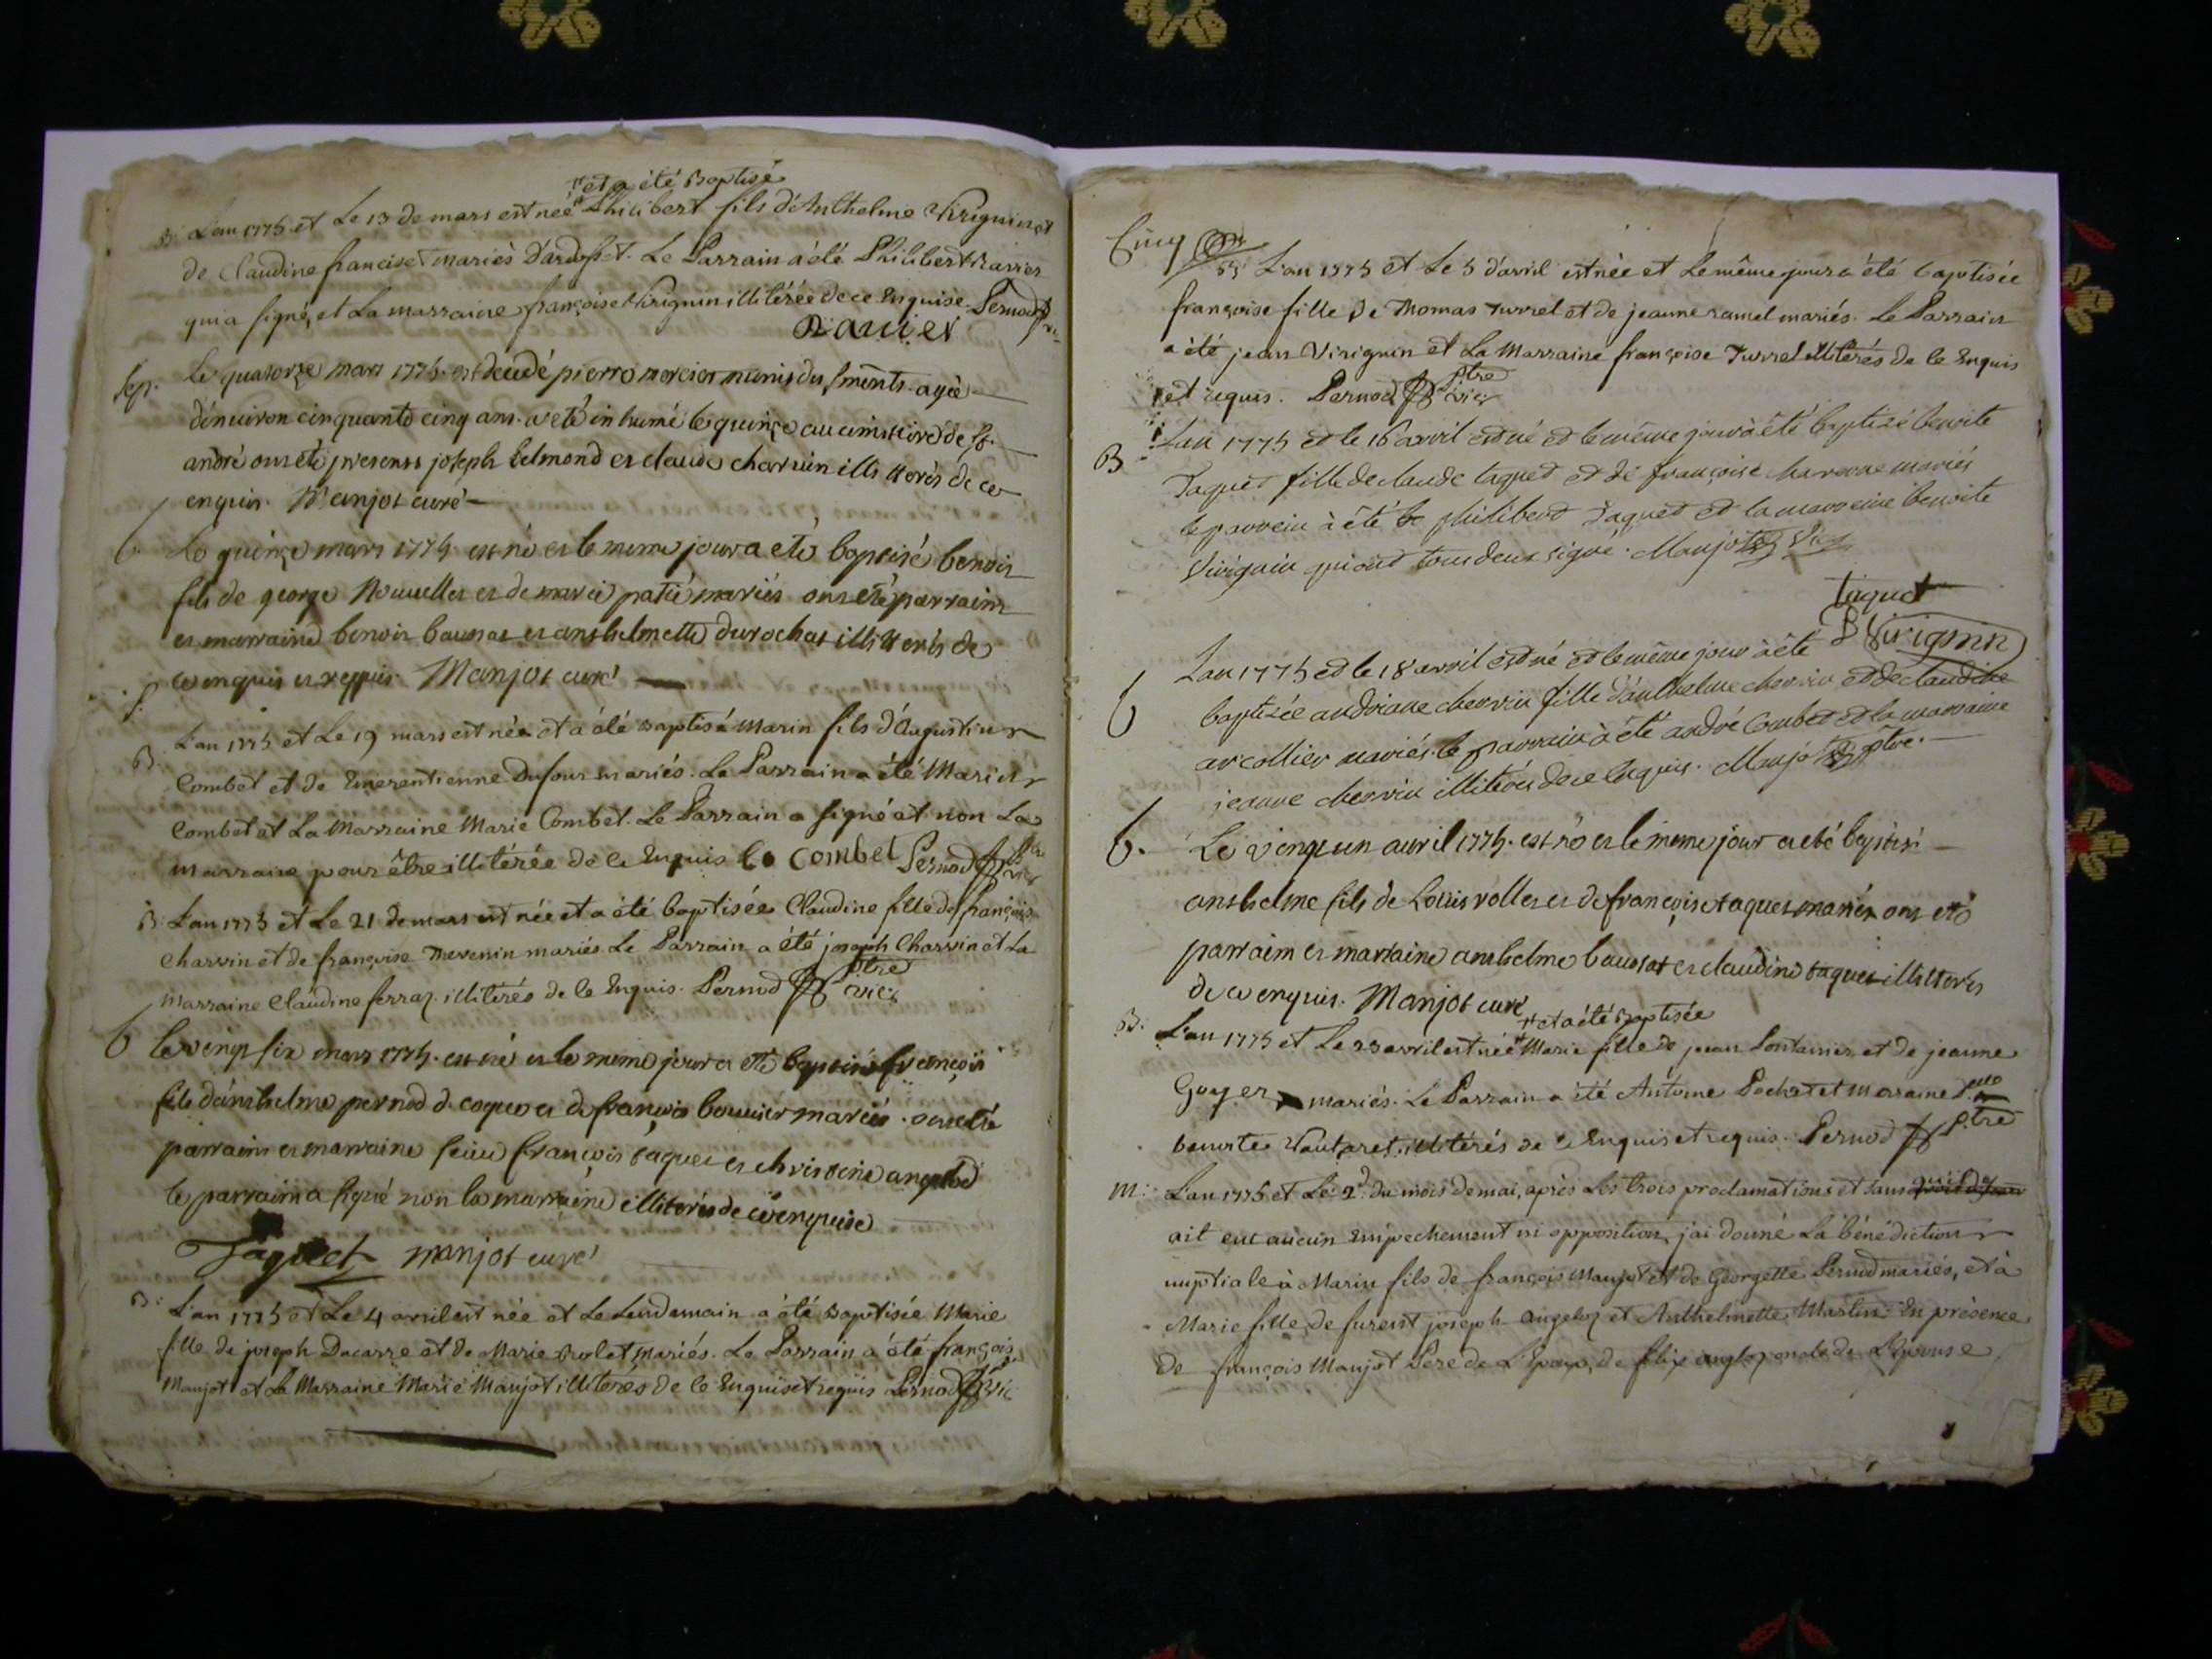 et a été Baptisé
B: L'an 1775 et Le 13 de mars est née Philibert fils d'Anthelme Virignin et
de Claudine francise mariés d'ardosset. Le Parrain a été Philibert
qui a signé, et La marraine françoise Virignin illitérée de ce Enquise. Pernod
Sep. Le quatorze mars 1775. est décédé pierre mercier munis du sments. agé
d'environ cinquante cinq ans. a eté inhumé le quinze au cimitière de st.
andré ont eté presents joseph belmond et claude charvin illitterés de ce
enquis. Manjot curé
b. Le quinze mars 1775. est né et le meme jour a eté baptisé benoit
fils de george Nouvelles et de marie patie mariés ont eté parrains
et marraine benoit baussat et anthelmette durochat illitterés de
ce enquis et requis. Manjot curé
B. L'an 1775 et Le 19 mars est née et a été Baptisé Marin fils d'Augustin
Combet et de Emerentienne Dufour mariés. Le Parrain a été Marin
Combet et La Marraine Marie Combet. Le Parrain a signé et non La
marraine pour être illitérée de ce Enquis Combet Pernod
B. L'an 1775 et Le 21 de mars est née et a été baptisée Claudine fille de françois
Charvin et de françoise Thevenin mariés. Le Parrain a été joseph Charvin et La
Marraine Claudine ferraz. illiterés de ce Enquis. Pernod Ptre vic:
b le vingt six mars 1775. est né et le meme jour a eté baptisé françois
fils d'anthelme pernod d. coquet et de françoise bouvier mariés. ont eté
parrains et marraine françois taquet et christine
le parrain a signé non la marraine illiterée de ce enquise
Taquet manjot curé
B: L'an 1775 et Le 4 avril est née et Le Lendemain a été Baptisée Marie
fille de joseph Ducarre et de Marie mariés. Le Parrain a été françois
Manjot et La Marraine Marie Manjot illitérés de ce Enquis et requis Pernod vic
Cinq
B: L'an 1775 et Le 5 d'avril est née et Le même jour a été baptisée
françoise fille de Thomas Turrel et de jeanne ramel mariés. Le Parrain
a été jean Virignin et La Marraine françoise Turrel illitérés de ce Enquis
et requis. Pernod Ptre vic:
B L'an 1775 et le 16 avril est né et le même jour à été baptizé benoite
Taquet fille de claude taquet et de françoise mariés
le parrein à été philiberd Taquet et la marreine benoite
Virignin qui ont tous deux signé. Manjot
taquet
B Virignin
b L'an 1775 et le 18 avril est né et le même jour à été
baptizée andriane chervin fille d'anthelme chervin et de claudine
arcollier mariés. le parrain à été andré Combet et la marraine
jeanne chervin illiterés de ce enquis. Manjot ptre.
b. Le vingt un avril 1775. est né et le meme jour a eté baptisé
anthelme fils de Louis vollet et de françoise taquet mariés ont eté
parrain et marraine anthelme baussat et claudine taquet illitterés
de ce enquis. Manjot curé
et a été Baptisée
B: L'an 1775 et Le 23 avril est née Marie fille de jean Fontanier et de jeanne
Goyer mariés. Le Parrain a été Antoine Pochet et Maraine
benoite Vautaret illitérés de ce Enquis et requis. Pernod Ptre
M: L'an 1775 et Le 2d. du mois de mai, après Les trois proclamations et sans
ait eut aucun Empechement ni opposition, j'ai donné La bénédiction
nuptiale à Marin fils de françois Manjot et de Georgette Pernod mariés, et à
Marie fille de furent joseph angeloz et Anthelmette Martin. En présence
de françois Manjot Pere de L'Epoux, de felix angloz oncle de L'Epouse